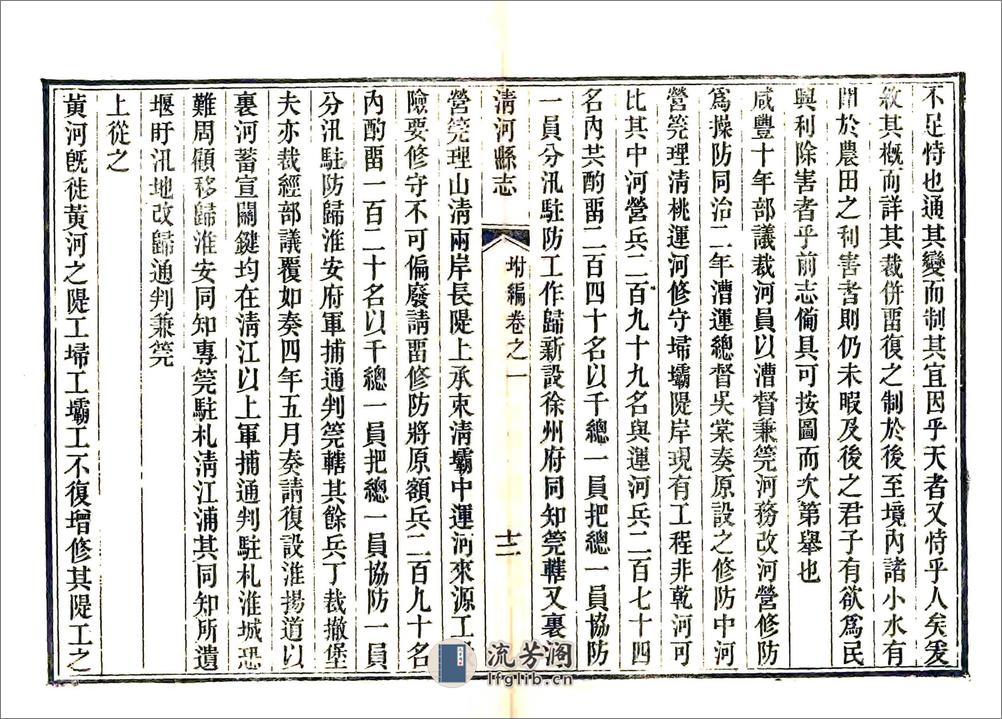 不足恃也通其變而制其宜因乎天者又恃乎人矣爰
敘其概而詳其裁併畱復之制於後至境內諸小水有
關於農田之利害者則仍未暇及後之君子有欲爲民
興利除害者乎前志僃具可按圖而次第舉也
咸豐十年部議裁河員以漕督兼筦河務改河營修防
爲操防同治二年漕運總督吳棠奏原設之修防中河
營筦理清桃運河修守埽壩隄岸現有工程非乾河可
比其中河營兵二百九十九名與運河兵二百七十四
名內共酌畱二百四十名以千總一員把總一員協防
一員分汛駐防工作歸新設徐州府同知筦轄又裏
清河縣志
坿編卷之一
十二
營筦理山清兩岸長隄上承束清壩中運河來源工
險要修守不可偏廢請畱修防將原額兵二百九十名
內酌畱一百二十名以千總一員把總一員協防一員
分汛駐防歸淮安府軍捕通判筦轄其餘兵丁裁撤堡
夫亦裁經部議覆如奏四年五月奏請復設淮揚道以
裏河蓄宣關鍵均在清江以上軍捕通判駐札淮城恐
難周顧移歸淮安同知專筦駐札清江浦其同知所遺
堰盱汛地改歸通判兼筦
上從之
黃河旣徙黃河之隄工埽工壩工不復增修其隄工之
流芳阁
lfglib.cn